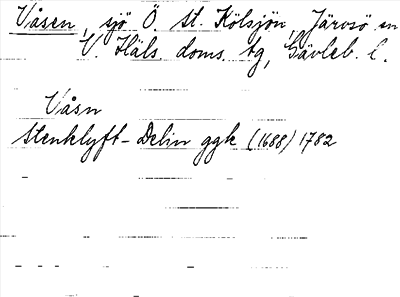 Våsen, sjö Ö. St. Kölsjön, Järvsö sn
V. Häls. doms. tg, Gävleb. l.
Våsn
Stenklyft-Delin ggk (1688) 1782